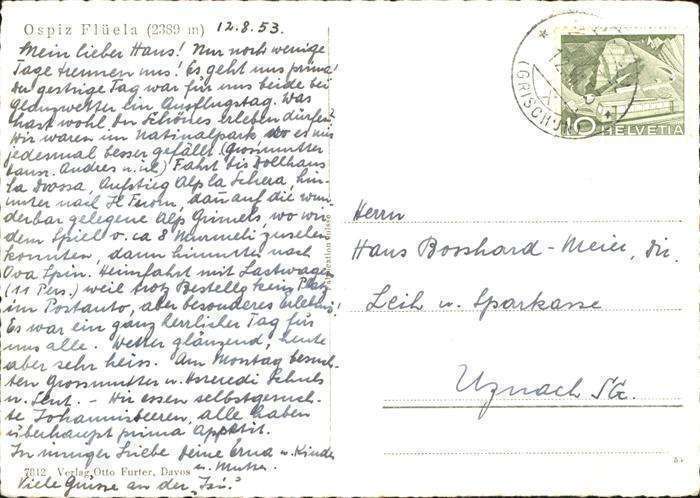 Ospiz Flüela (2389 m) 12.8.53.
Mein lieber Hans! Nur noch wenige
Tage trennen uns! Es geht uns prima!
Der gestrige Tag war für uns beide bei
Glanzwetter ein Ausflugstag. Was
hast wohl Du Schönes erleben dürfen?
Wir waren im Nationalpark wo es mir
jedesmal besser gefällt. (Grossmutter
Andres u. ich) Fahrt bis Zollhaus
la Drossa, Aufstieg Alp la Schera, hin-
unter nach Il Fuorn, dann auf die wun-
derbar gelegene Alp Grimels, wo wir
dem Spiel v. ca 8 Murmeli zusehen
konnten, dann hinunter nach
Ova Spin. Heimfahrt mit Lastwagen
(11 Pers.) weil trotz Bestellg kein Platz
im Postauto, aber besonderes Erlebnis!
Es war ein ganz herrlicher Tag für
uns alle. Wetter glänzend, heute
aber sehr heiss. Am Montag besuch-
ten Grossmutter u. Schuls
u. Sent. - Wir essen selbstgesuch-
te Johannisbeeren, alle haben
überhaupt prima Appetit.
In inniger Liebe Deine Erna u. Kinder
u. Mutter.
7812 Verlag Otto Furter, Davos
Viele Grüsse an der "Isi".
HELVETIA
10
(GRISCHUN)
Herrn
Hans Bosshard-Meier, Dir.
Leih u. Sparkasse
Uznach SG.